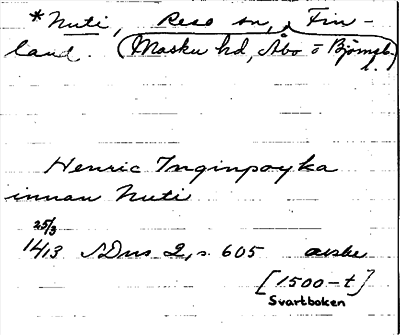 *Nuti, Reso sn, Fin-
land. (Masku hd, Åbo o Björnebs l.)
Henric Inginpoyka
innan Nuti
25/3
1413 SDns 2, s 605 avskr
[1500-t]
Svartboken